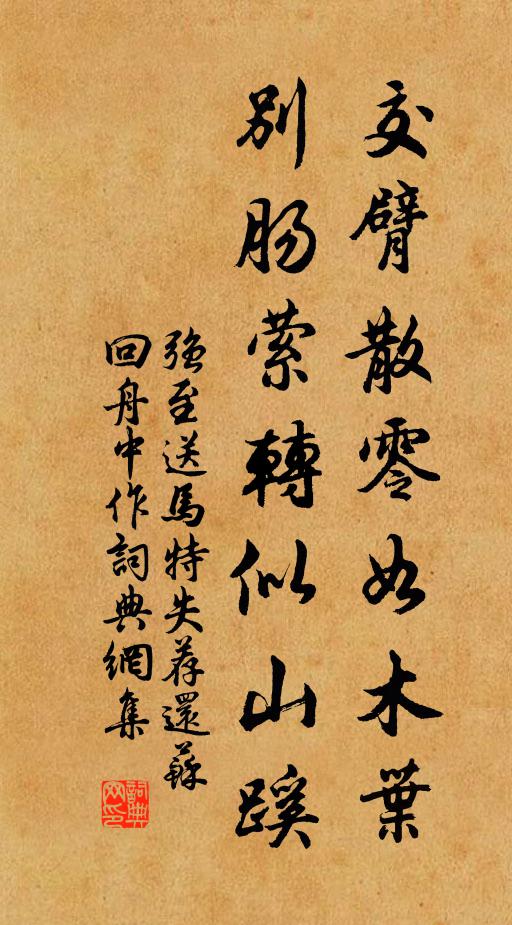 交臂散零如木葉
别肠萦轉似山蹊
强至送馬特失荐還蘇
回舟中作詞典網集
詞典网印